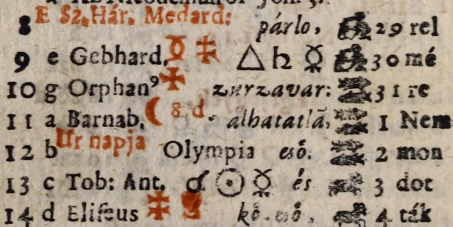 8 E Sz. Hár. Medard: párlo, 29 rel
9 e Gebhard, △ ♄ ☿ 30 mé
10 g Orphan⁹ zurzavar: 31 re
11 a Barnab, ☾ 8 d. alhatatlã, 1 Nem
12 b Ur napja Olympia esõ. 2 mon
13 c Tob: Ant. ☌ ☉ ☿ és 3 dot
14 d Eliſeus kõ-esõ, 4 ták